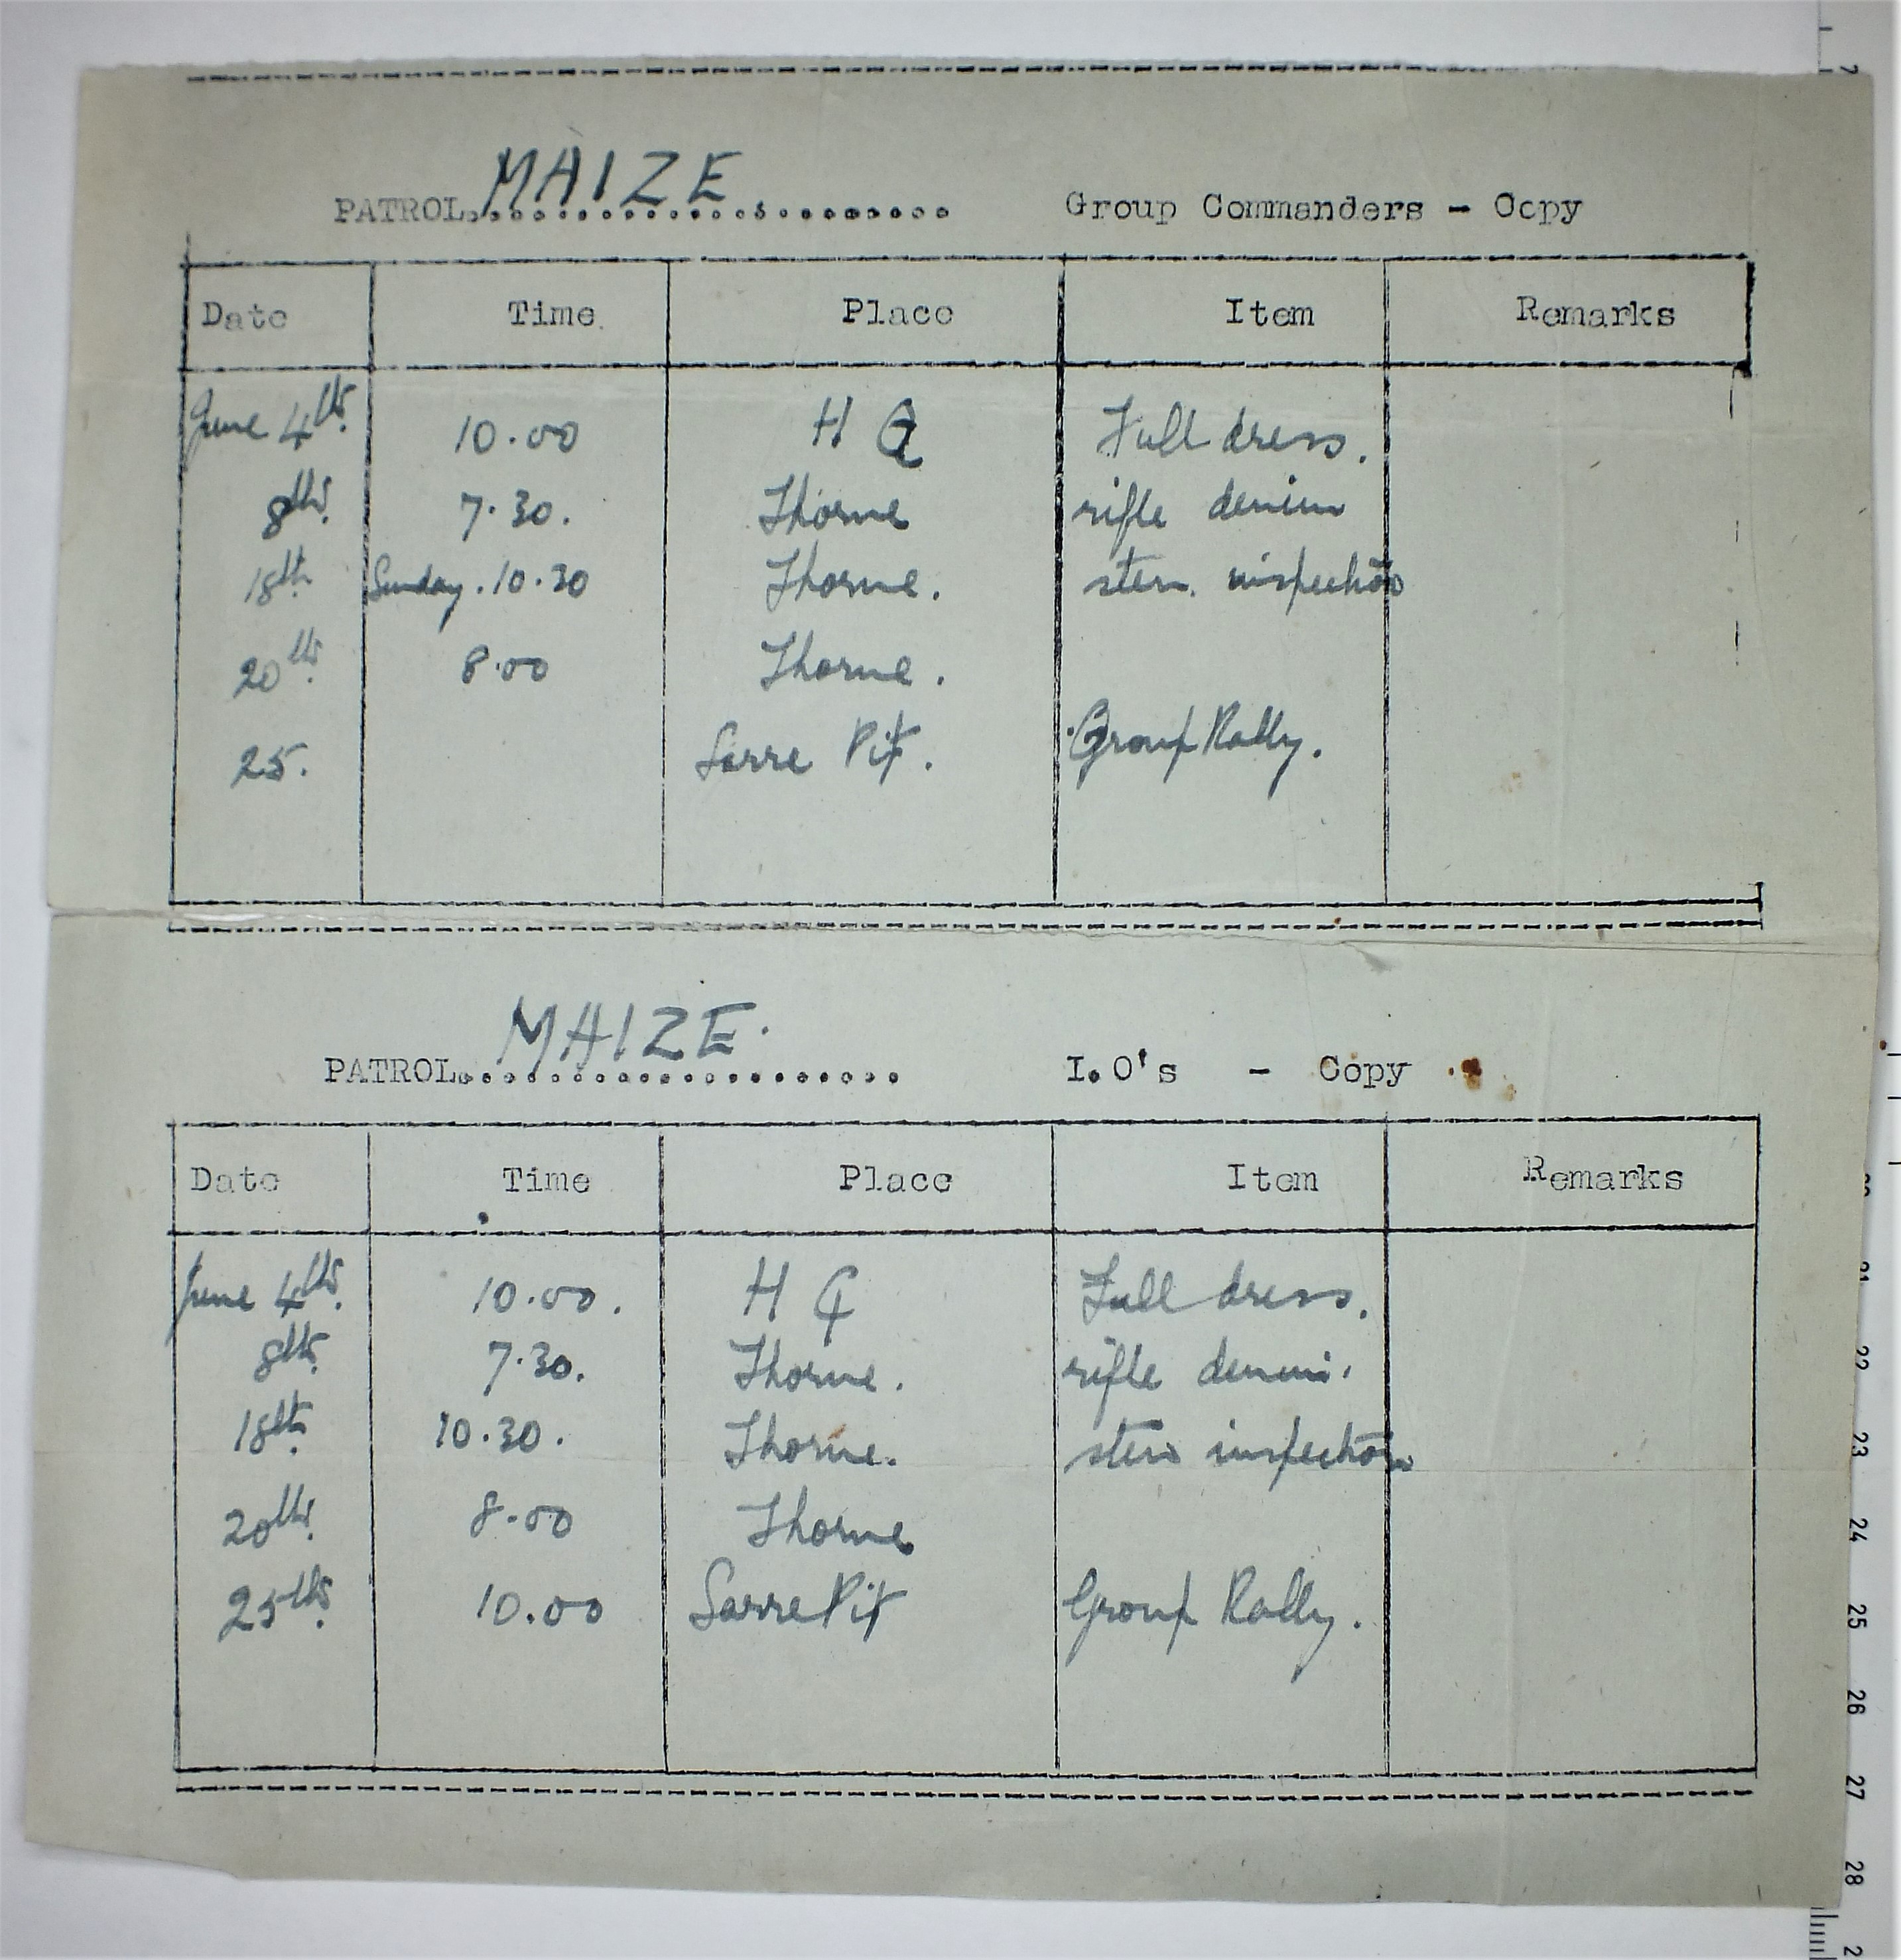 PATROL MAIZE Group Commanders - Copy
Date Time Place Item Remarks
June 4th. 10.00 H Q Full dress.
8th. 7.30. Thorne rifle denim
18th. Sunday. 10.30 Thorne. sten. inspection
20th. 8.00 Thorne.
25. Sarre Pit. Group Rally.
PATROL MAIZE. I.O's - Copy
Date Time Place Item Remarks
June 4th. 10.00. H Q Full dress.
8th. 7.30. Thorne. rifle denim.
18th. 10.30. Thorne. sten inspection
20th. 8.00 Thorne
25th. 10.00 Sarre Pit Group Rally.
21
22
23
24
25
26
27
28